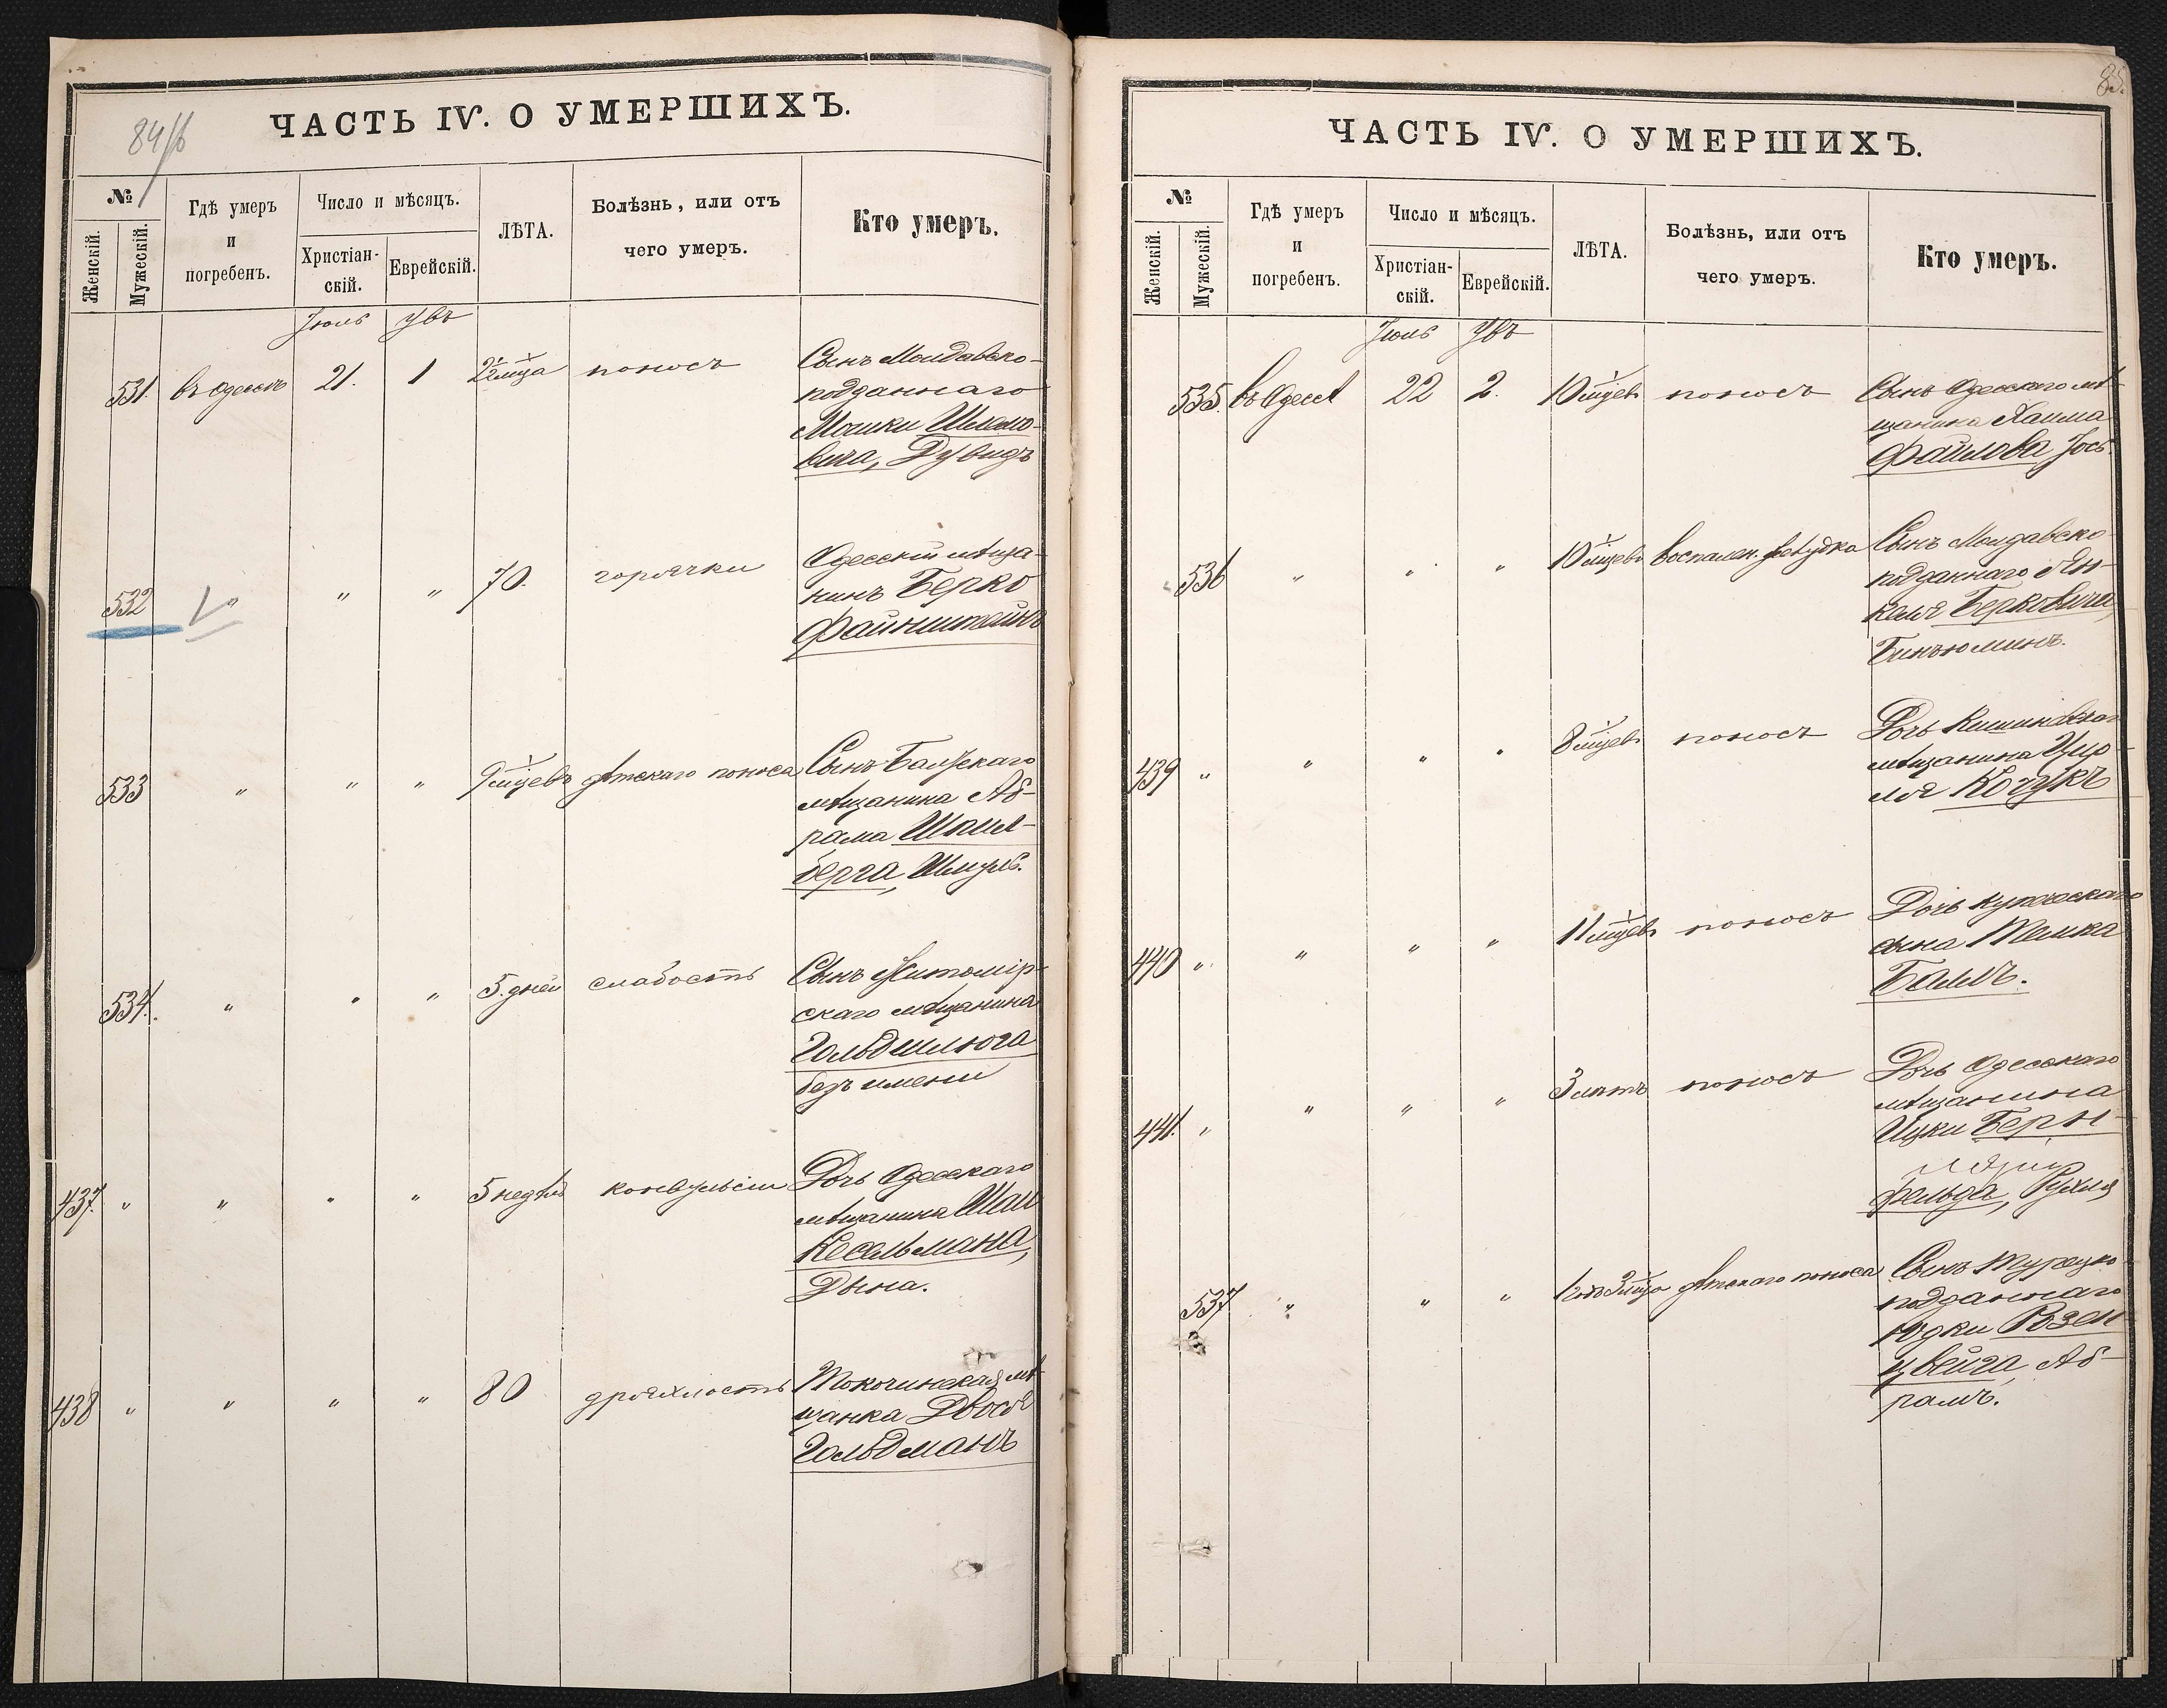 ЧАСТЬ IV. О УМЕРШИХЪ.
84/б
№
Женскій.
Мужескій.
Гдѣ умеръ
и
погребенъ.
Число и мѣсяцъ.
Христіан-
скій.
Еврейскій.
ЛѢТА.
Болѣзнь, или отъ
чего умеръ.
Кто умеръ.
Іюль Увъ
531. въ Одессѣ 21. 1 поносъ
Сынъ Молдавско-
подданнаго
Мошки Шмило-
вича, Дувидъ
532 " " " 70. горячки
Одесскій мѣща-
нинъ Берко
Файнштейнъ
533 " " " 9 м-цевъ дѣтскаго поноса
Сынъ Балтскаго
мѣщанина Аб-
рама
берга, Шмуль.
534. " " " 5. дней слабость
Сынъ Житомір-
скаго мѣщанина
Гольдшлюга
безъ имени
437. " " " " 5 недѣль конвульсіи
Дочь Одесскаго
мѣщанина
Кесельмана,
Дына.
438 " " " " 80 дряхлость
мѣ-
щанка Двося
Гольдманъ
ЧАСТЬ IV. О УМЕРШИХЪ.
85.
№
Женскій.
Мужескій.
Гдѣ умеръ
и
погребенъ.
Число и мѣсяцъ.
Христіан-
скій.
Еврейскій.
ЛѢТА.
Болѣзнь, или отъ
чего умеръ.
Кто умеръ.
Іюль Увъ
535. въ Одессѣ 22 2. 10 м-цевъ поносъ
Сынъ Одесскаго мѣ-
щанина Хаима
Файлова Іось.
536 " " " 10 м-цевъ воспален. желудка
Сынъ Молдавско-
подданнаго Ян-
келя Берковича,
Биньюминъ.
439 " " " " 8 м-цевъ поносъ
Дочь Кишиневскаго
мѣщанина Сру-
ля Кочукъ
440 " " " " 11 м-цевъ поносъ
Дочь купеческаго
сына
Балъ.
441. " " " " 3 лѣтъ поносъ
Дочь Одесскаго
мѣщанина
Ицки Берн-
фельда, Рухля
537 " " " 1 годъ 3 м-ца дѣтскаго поноса
Сынъ Турецко-
подданнаго
Юдки Розен-
цвейга, Аб-
рамъ.